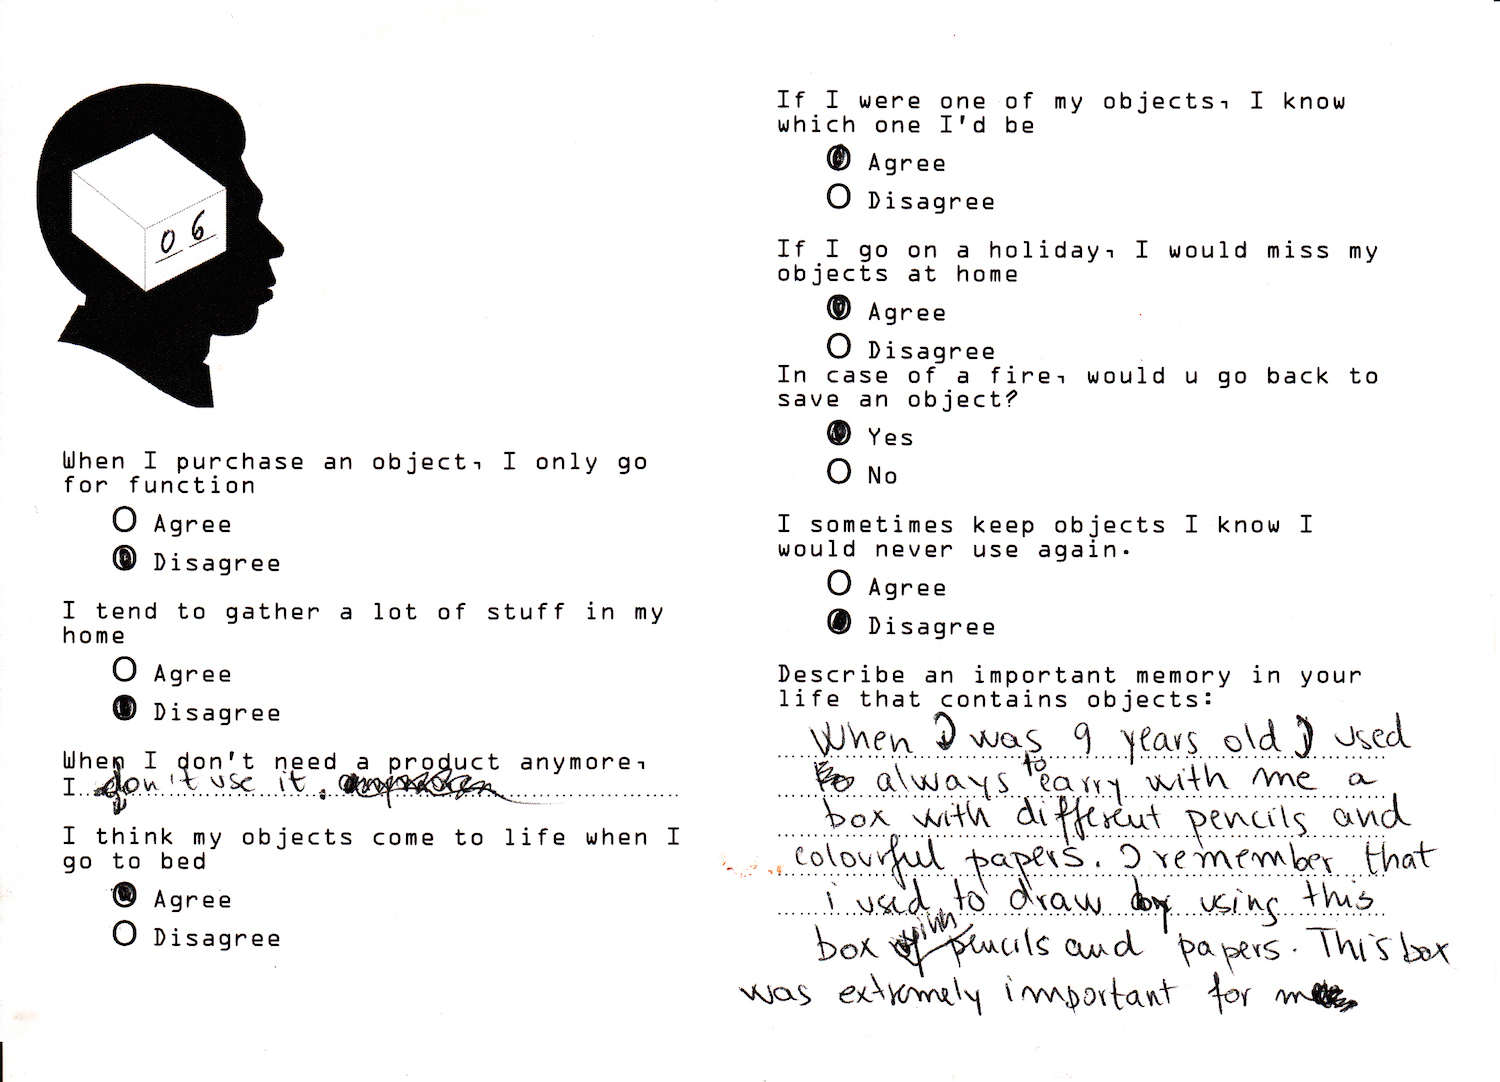 0 6
When I purchase an object, I only go
for function
O Agree
O Disagree
I tend to gather a lot of stuff in my
home
O Agree
O Disagree
When I don't need a product anymore,
I don't use it.
I think my objects come to life when I
go to bed
O Agree
O Disagree
If I were one of my objects, I know
which one I'd be
O Agree
O Disagree
If I go on a holiday, I would miss my
objects at home
O Agree
O Disagree
In case of a fire, would u go back to
save an object?
O Yes
O No
I sometimes keep objects I know I
would never use again.
O Agree
O Disagree
Describe an important memory in your
life that contains objects:
When I was 9 years old I used
always to carry with me a
box with different pencils and
colourful papers. I remember that
i used to draw by using this
box with pencils and papers. This box
was extremely important for me